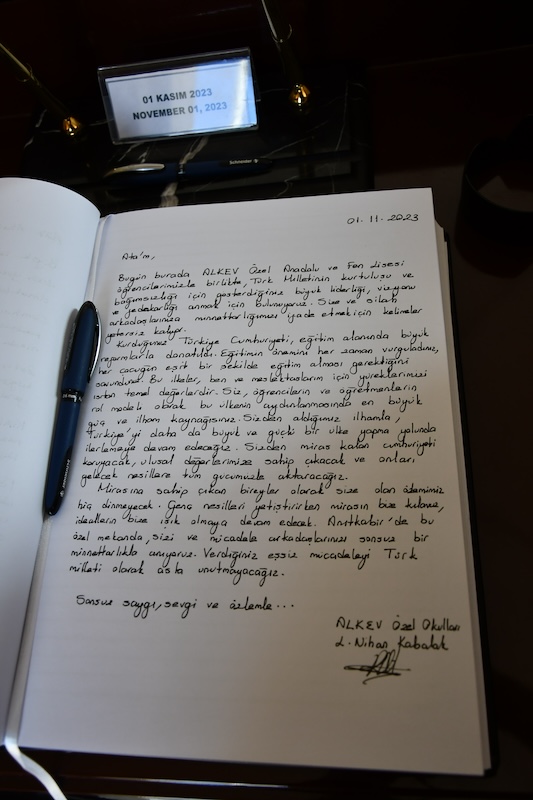 01 KASIM 2023
NOVEMBER 01, 2023
Schneider
01.11.2023
Ata'm,
Bugün burada ALKEV Özel Anadolu ve Fen Lisesi
öğrencilerimizle birlikte, Türk Milletinin kurtuluşu ve
bağımsızlığı için gösterdiğiniz büyük liderliği, vizyonu
ve fedekarlığı anmak için bulunuyoruz. Size ve silah
arkadaşlarınıza minnettarlığımızı ifade etmek için kelimeler
yetersiz kalıyor.
Kurduğunuz Türkiye Cumhuriyeti, eğitim alanında büyük
reformlarla donatıldı. Eğitimin önemini her zaman vurguladınız,
her çocuğun eşit bir şekilde eğitim alması gerektiğini
savundunuz. Bu ilkeler, ben ve meslektaşlarım için yüreklerimizi
ısıtan temel değerlerdir. Siz, öğrencilerin ve öğretmenlerin
rol modeli olarak bu ülkenin aydınlanmasında en büyük
güç ve ilham kaynağısınız. Sizden aldığımız ilhamla,
Türkiye'yi daha da büyük ve güçlü bir ülke yapma yolunda
ilerlemeye devam edeceğiz. Sizden miras kalan cumhuriyeti
koruyacak, ulusal değerlerimize sahip çıkacak ve onları
gelecek nesillere tüm gücümüzle aktaracağız.
Mirasına sahip çıkan bireyler olarak size olan özlemimiz
hiç dinmeyecek. Genç nesilleri yetiştirirken mirasın bize kılavuz,
ideallerin bize ışık olmaya devam edecek. Anıtkabir'de bu
özel mekanda, sizi ve mücadele arkadaşlarınızı sonsuz bir
minnettarlıkla anıyoruz. Verdiğiniz eşsiz mücadeleyi Türk
milleti olarak asla unutmayacağız.
Sonsuz saygı, sevgi ve özlemle...
ALKEV Özel Okulları
L. Nihan Kabalak